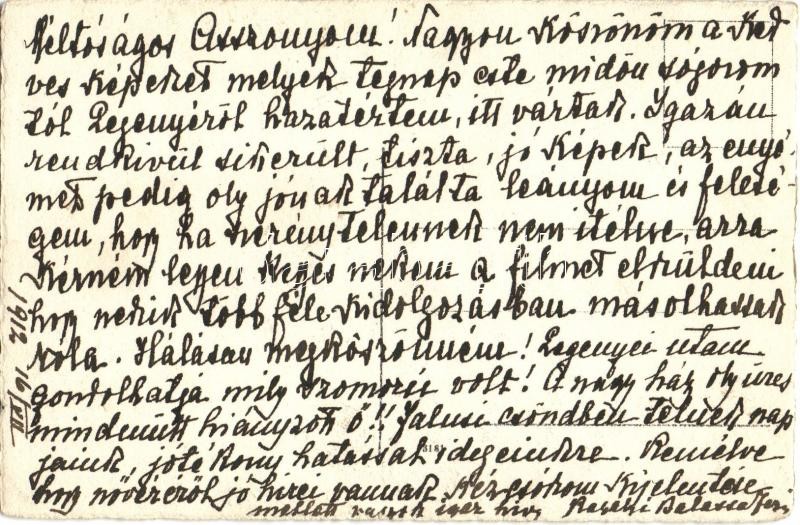 Méltóságos Asszonyom! Nagyon köszönöm a ked
ves képeket melyek tegnap este midőn sógorom
tól Legenyéről hazatértem, itt vártak. Igazán
rendkivül sikerült, tiszta, jó képek, az enyé-
met pedig oly jónak találta leányom és felesé-
gem, hogy ha szerénytelennek nem itélne, arra
kérném legyen kegyes nekem a filmet elküldeni
hogy nekik több féle kidolgozásban másolhassak
róla. Hálásan megköszönném! Legenyei utam
gondolhatja mily szomorú volt! A nagy ház oly üres
mindenütt hiányzott ő!! Falusi csöndben telnek nap
jaink, jótékony hatással idegeinkre. Remélve
hogy nővéréről jó hirei vannak. Kézcsókom kijelentése
mellett vagyok igaz hive
1912 16/VII
318